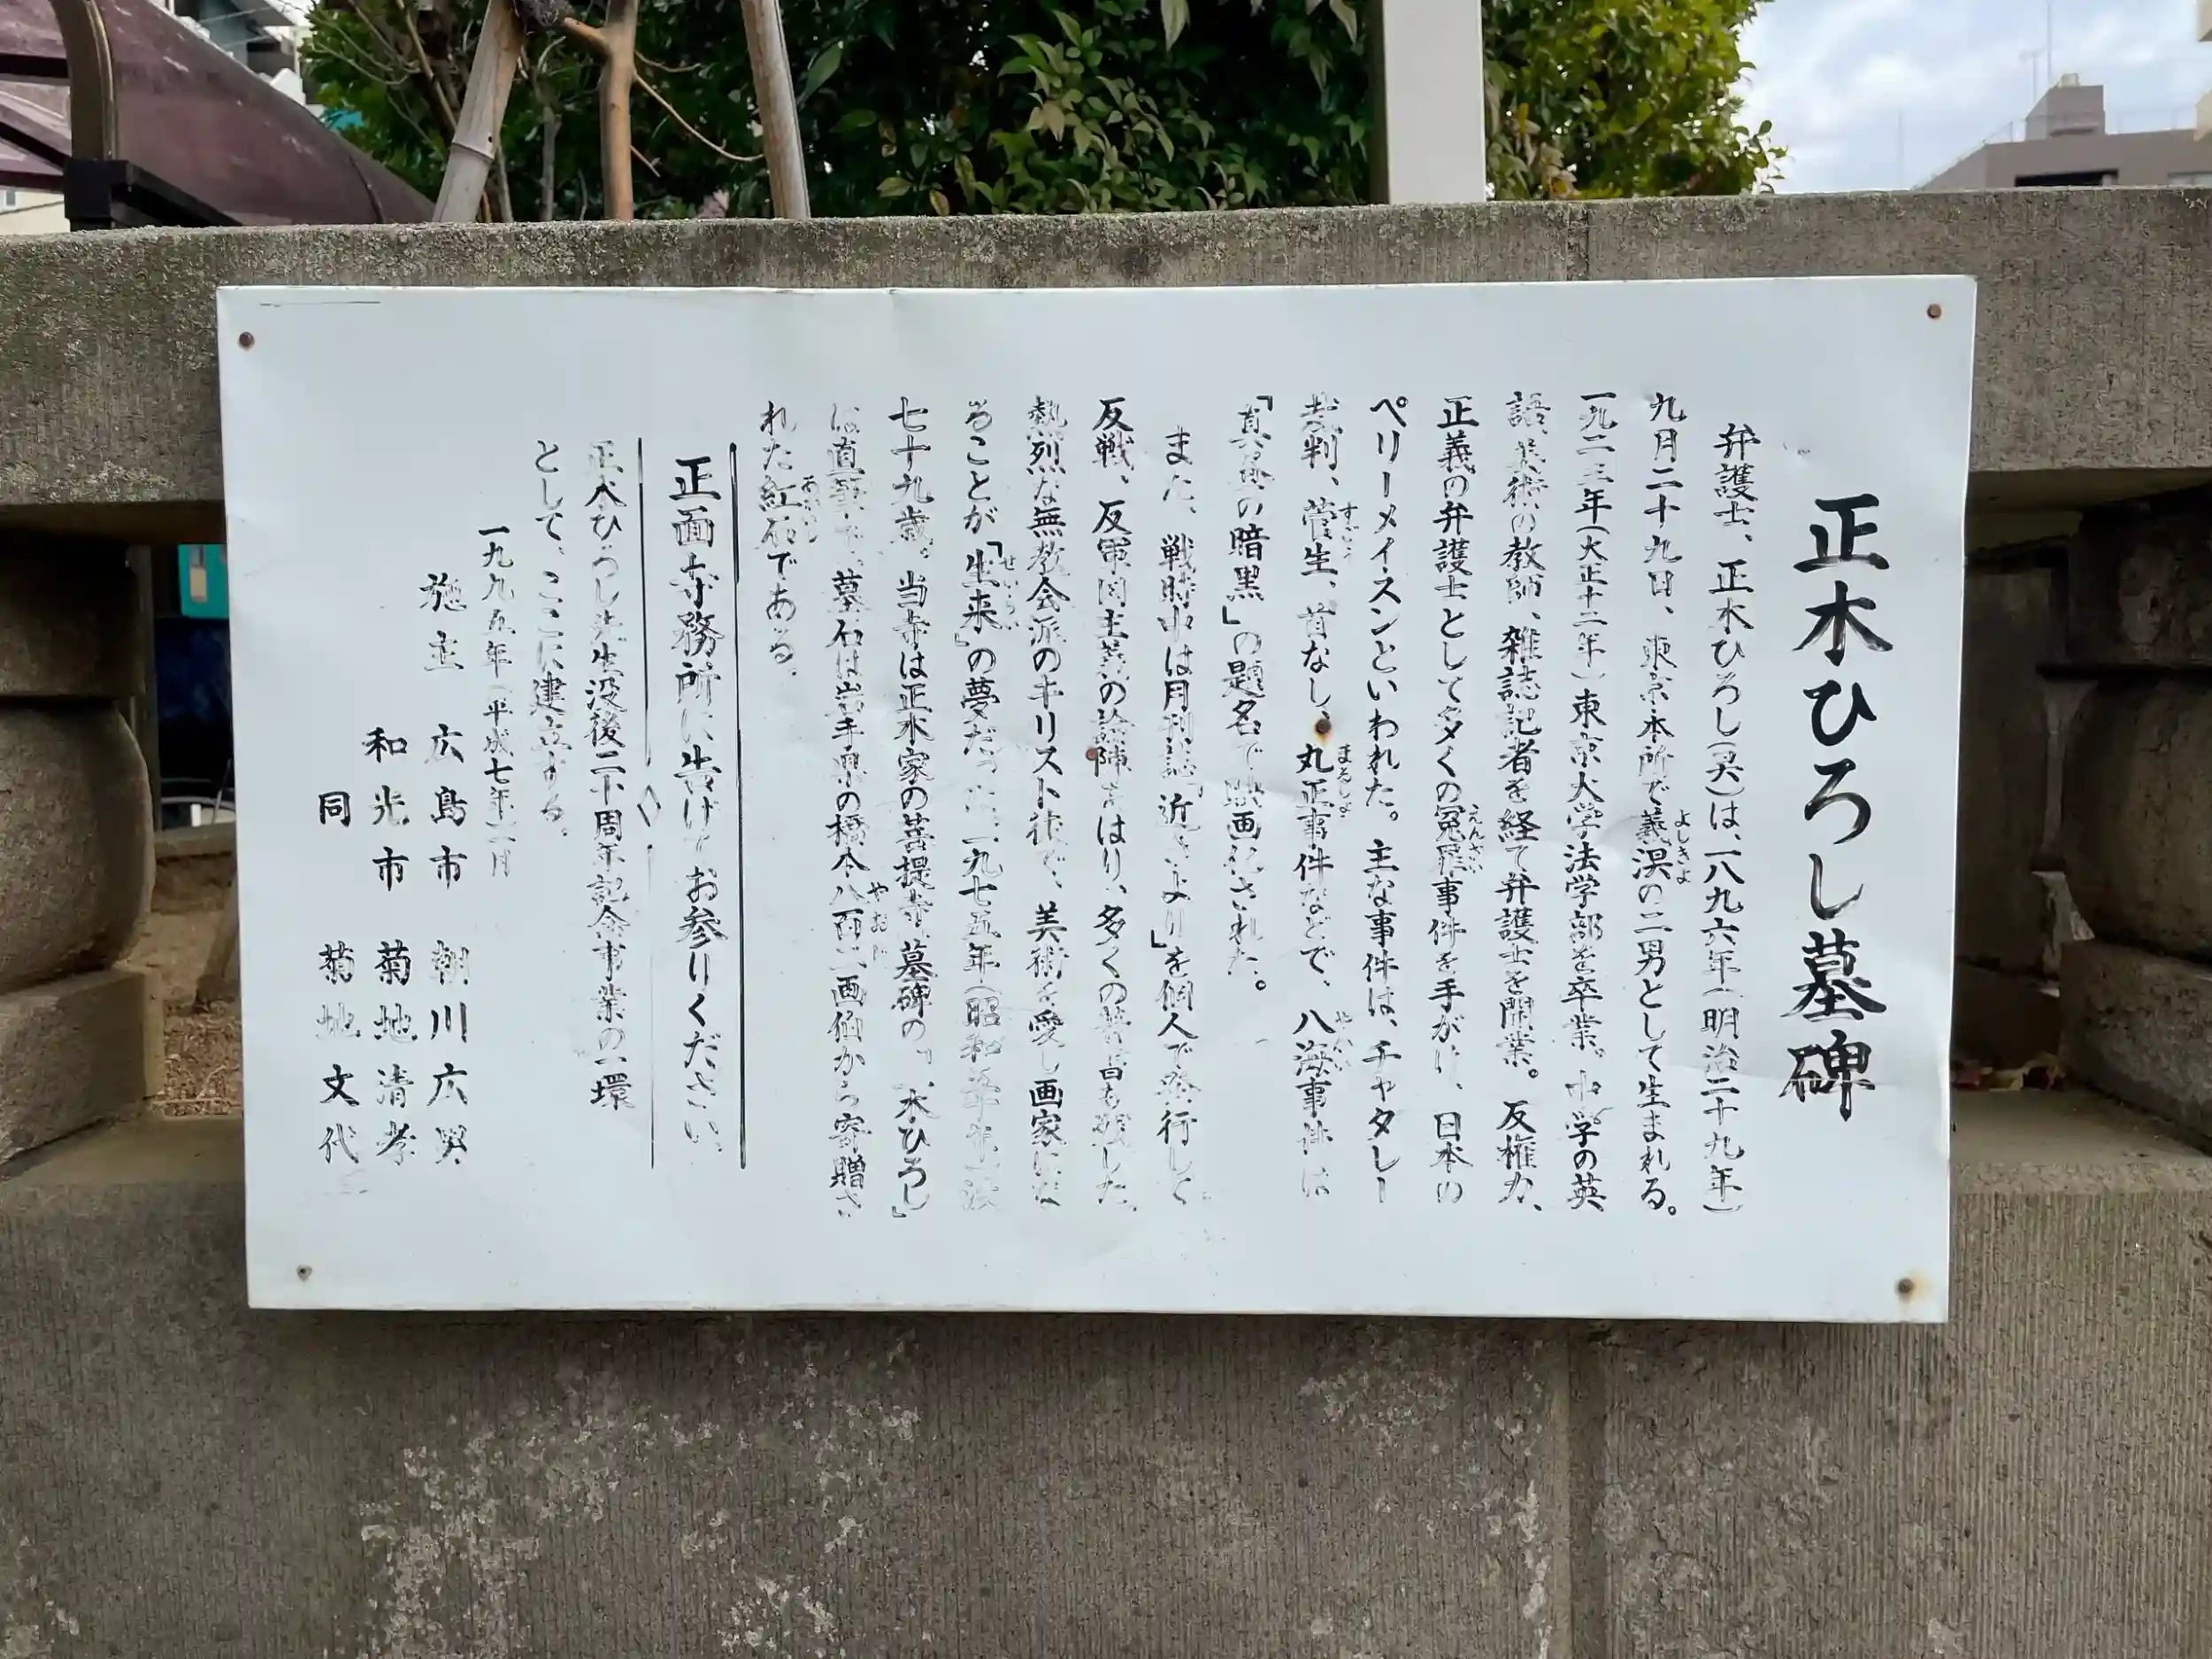 正木ひろし墓碑
弁護士、正木ひろし(昊)は、一八九六年(明治二十九年)
九月二十九日、東京本所で義溟の二男として生まれる。
一九二三年(大正十二年)東京大学法学部を卒業。中学の英
語、美術の教師、雑誌記者を経て弁護士を開業。反権力、
正義の弁護士として多くの冤罪事件を手がけ、日本の
ペリーメイスンといわれた。主な事件は、チャタレー
裁判、菅生、首なし、丸正事件などで、八海事件は
「真昼の暗黒」の題名で映画化された。
また、戦時中は月刊誌「近きより」を個人で発行して
反戦、反軍国主義の論陣をはり、多くの著書を残した。
熱烈な無教会派のキリスト徒で、美術を愛し画家にな
ることが「生来」の夢だった。一九七五年(昭和五十年)没
七十九歳。当寺は正木家の菩提寺、墓碑の「正木ひろし」
は直筆で、墓石は岩手県の橋本八百二画伯から寄贈さ
れた紅石である。
正面寺務所に告げてお参りください。
正木ひろし先生没後二十周年記念事業の一環
として、ここに建立する。
一九九五年(平成七年)二月
施主 広島市 朝川広男
和光市 菊地清孝
同 菊地文代